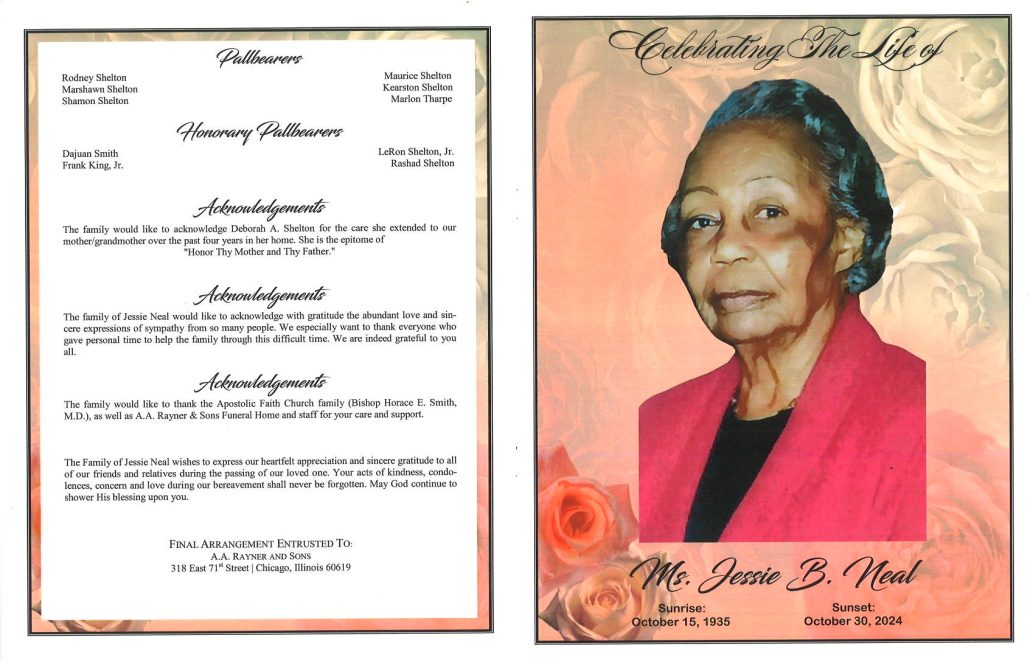 Pallbearers
Rodney Shelton
Marshawn Shelton
Shamon Shelton
Maurice Shelton
Kearston Shelton
Marlon Tharpe
Honorary Pallbearers
Dajuan Smith
Frank King, Jr.
LeRon Shelton, Jr.
Rashad Shelton
Acknowledgements
The family would like to acknowledge Deborah A. Shelton for the care she extended to our
mother/grandmother over the past four years in her home. She is the epitome of
"Honor Thy Mother and Thy Father."
Acknowledgements
The family of Jessie Neal would like to acknowledge with gratitude the abundant love and sin-
cere expressions of sympathy from so many people. We especially want to thank everyone who
gave personal time to help the family through this difficult time. We are indeed grateful to you
all.
Acknowledgements
The family would like to thank the Apostolic Faith Church family (Bishop Horace E. Smith,
M.D.), as well as A.A. Rayner & Sons Funeral Home and staff for your care and support.
The Family of Jessie Neal wishes to express our heartfelt appreciation and sincere gratitude to all
of our friends and relatives during the passing of our loved one. Your acts of kindness, condo-
lences, concern and love during our bereavement shall never be forgotten. May God continue to
shower His blessing upon you.
FINAL ARRANGEMENT ENTRUSTED TO:
A.A. RAYNER AND SONS
318 East 71st Street | Chicago, Illinois 60619
Celebrating The Life of
Ms. Jessie B. Neal
Sunrise:
October 15, 1935
Sunset:
October 30, 2024